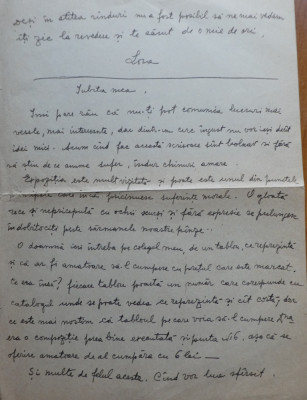 Deși în atîtea rînduri nu a fost posibil să ne mai vedem
îți zic la revedere și te sărut de o mie de ori.
Lova
Iubita mea,
Îmi pare rău că nu-ți pot comunica lucruri mai
vesele, mai interesante, dar dintr-un care îngust nu vor ieși decît
idei mici. Acum cînd fac această scrisoare sînt bolnav și fără
să știu de ce anume sufer, îndur chinuri amare.
Expoziția este mult vizitată și poate este unul din punctele
care îmi pricinuesc suferinți morale. O gloată
rece și nepricepută cu ochii scurși și fără expresie se prelungesc
îndobitociți peste sărmanele noastre pînze.
O doamnă ieri întreba pe colegul meu, de un tablou, ce reprezintă
și că ar fi amatoare să-l cumpere cu prețul care este marcat.
Ce era însă? fiecare tablou poartă un număr care corespunde cu
catalogul unde se poate vedea ce reprezintă și cît costă, dar
ce este mai nostim că tabloul pe care voia să-l cumpere D-na
era o compoziție prea bine executată și purta No 6, așa că se
oferise amatoare de al cumpăra cu 6 lei —
Și multe de felul acesta. Cînd vor lua sfîrșit.